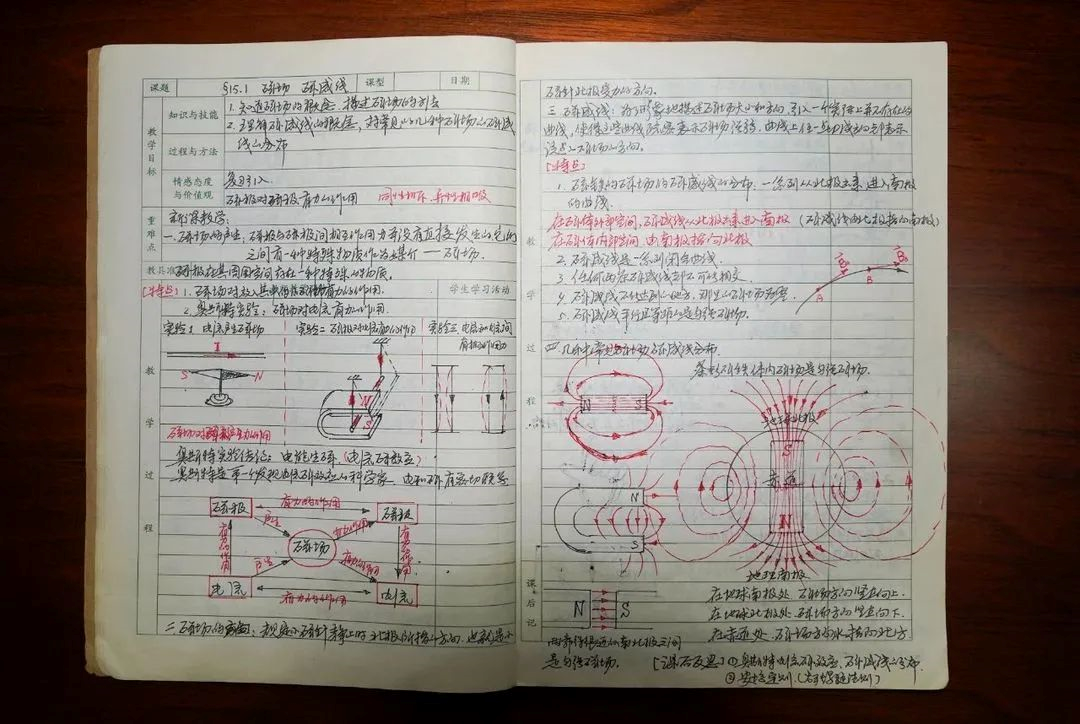 课题 §15.1 磁场 磁感线 课型 日期
教学目标
知识与技能 1. 知道磁场的概念，描述磁场的列表
2. 理解磁感线的概念，对常见的几种磁场的磁感
过程与方法 线的分布
情感态度与价值观 复习引入
磁极对磁极有力的作用 同性相斥、异性相吸
重难点
新课教学：
一. 磁场的产生：磁极与磁极间相互作用力并没有直接发生的它们
之间有一种特殊物质作为媒介——磁场.
教具准
磁极在其周围空间存在一种特殊的物质.
[特点] 1. 磁场对放入其中的磁极有力的作用.
学生学习活动
2. 奥斯特实验：磁场对电流有力的作用.
实验1 电流产生磁场
实验二 磁极对电流有力的作用
实验三 电流和电流间有相互作用力
I
S N
N
S
奥斯特实验结论：电能生磁.（电流磁效应）
奥斯特是第一个发现电流磁效应的科学家. 电和磁有密切联系
磁极 有力的作用 磁极
产生 有力的作用
有力的作用 磁场 有力的作用
产生 有力的作用
电流 有力的作用 电流
教学过程
二. 磁场的方向：规定小磁针静止时北极所指的方向. 也就是小
磁针北极受力的方向.
三. 磁感线：为了形象地描述磁场大小和方向，引入一个实际上并不存在的
曲线，使得这些曲线疏密表示磁场强弱. 曲线上任一点切线方向都表示
该点的磁场的方向.
[特点]
1. 磁铁的磁场的磁感线的分布. 一系列从北极出来，进入南极
的曲线.
在磁体外部空间，磁感线从北极出来进入南极（磁感线由北极指向南极）
在磁体内部空间，由南极指向北极
2. 磁感线是一系列闭合曲线.
3. 任何两条磁感线都不可能相交.
4. 磁感线越密的地方，那里的磁场越强.
5. 磁感线平行且等距的是匀强磁场.
A B B B
教学过程
四. 几种常见的磁场磁感线分布.
条形磁铁体内磁场是匀强磁场.
N S
地理北极
S
赤道
N
地理南极
N
S
N S
课后记
两靠得很近的南北极之间
是匀强磁场.
在地球南极处，磁场方向竖直向上.
在地球北极处，磁场方向竖直向下.
在赤道处，磁场方向水平指向北方
[课后反思] ①奥斯特电流磁效应，磁感线的分布.
②安培定则.（右手螺旋法则）